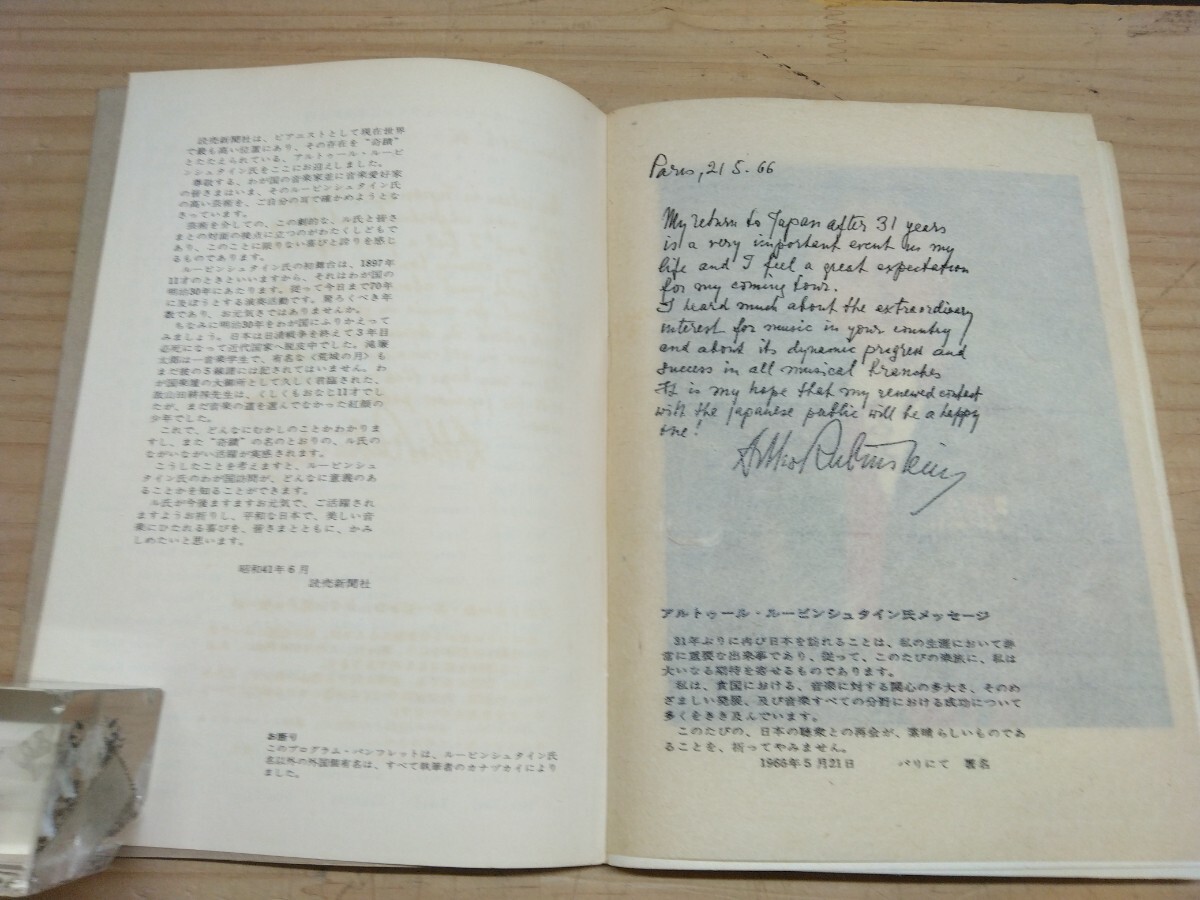 読売新聞社は、ピアニストとして現在世界
で最も高い位置にあり、その存在を“奇蹟”
とたたえられている、アルトゥール・ルービ
ンシュタイン氏をここにお迎えしました。
尊敬する、わが国の音楽家並に音楽愛好家
の皆さまはいま、そのルービンシュタイン氏
の高い芸術を、ご自分の耳で確かめようとな
さっています。
芸術を介しての、この劇的な、ル氏と皆さ
まとの対面の接点に立つのがわたくしどもで
あり、このことに限りない喜びと誇りを感じ
るものであります。
ルービンシュタイン氏の初舞台は、1897年
11才のときといいますから、それはわが国の
明治30年にあたります。従って今日まで70年
に及ぼうとする演奏活動です。驚ろくべき年
数であり、お元気さではありませんか。
ちなみに明治30年をわが国にふりかえって
みましょう。日本は日清戦争を終えて3年目
必死になって近代国家へ脱皮中でした。滝廉
太郎は一音楽学生で、有名な〈荒城の月〉も
まだ彼の5線譜には記されてはいません。わ
が国楽壇の大御所として久しく君臨された、
故山田耕筰先生は、くしくもおなじ11才でし
たが、まだ音楽の道を選んでなかった紅顔の
少年でした。
これで、どんなにむかしのことかわかりま
すし、また“奇蹟”の名のとおりの、ル氏の
ながいながい活躍が実感されます。
こうしたことを考えますと、ルービンシュ
タイン氏のわが国訪問が、どんなに意義のあ
ることかを知ることができます。
ル氏が今後ますますお元気で、ご活躍され
ますようお祈りし、平和な日本で、美しい音
楽にひたれる喜びを、皆さまとともに、かみ
しめたいと思います。
昭和41年6月
読売新聞社
お断り
このプログラム・パンフレットは、ルービンシュタイン氏
名以外の外国個有名は、すべて執筆者のカナヅカイにより
ました。
Paris, 21 5. 66
My return to Japan after 31 years
is a very important event in my
life and I feel a great expectation
for my coming tour.
I heard much about the extraordinary
interest for music in your country
and about its dynamic progress and
success in all musical branches
It is my hope that my renewed contact
with the Japanese public will be a happy
one!
Arthur Rubinstein
アルトゥール・ルービンシュタイン氏メッセージ
31年ぶりに再び日本を訪れることは、私の生涯において非
常に重要な出来事であり、従って、このたびの楽旅に、私は
大いなる期待を寄せるものであります。
私は、貴国における、音楽に対する関心の多大さ、そのめ
ざましい発展、及び音楽すべての分野における成功について
多くをきき及んでいます。
このたびの、日本の聴衆との再会が、素晴らしいものであ
ることを、祈ってやみません。
1966年5月21日 パリにて 署名